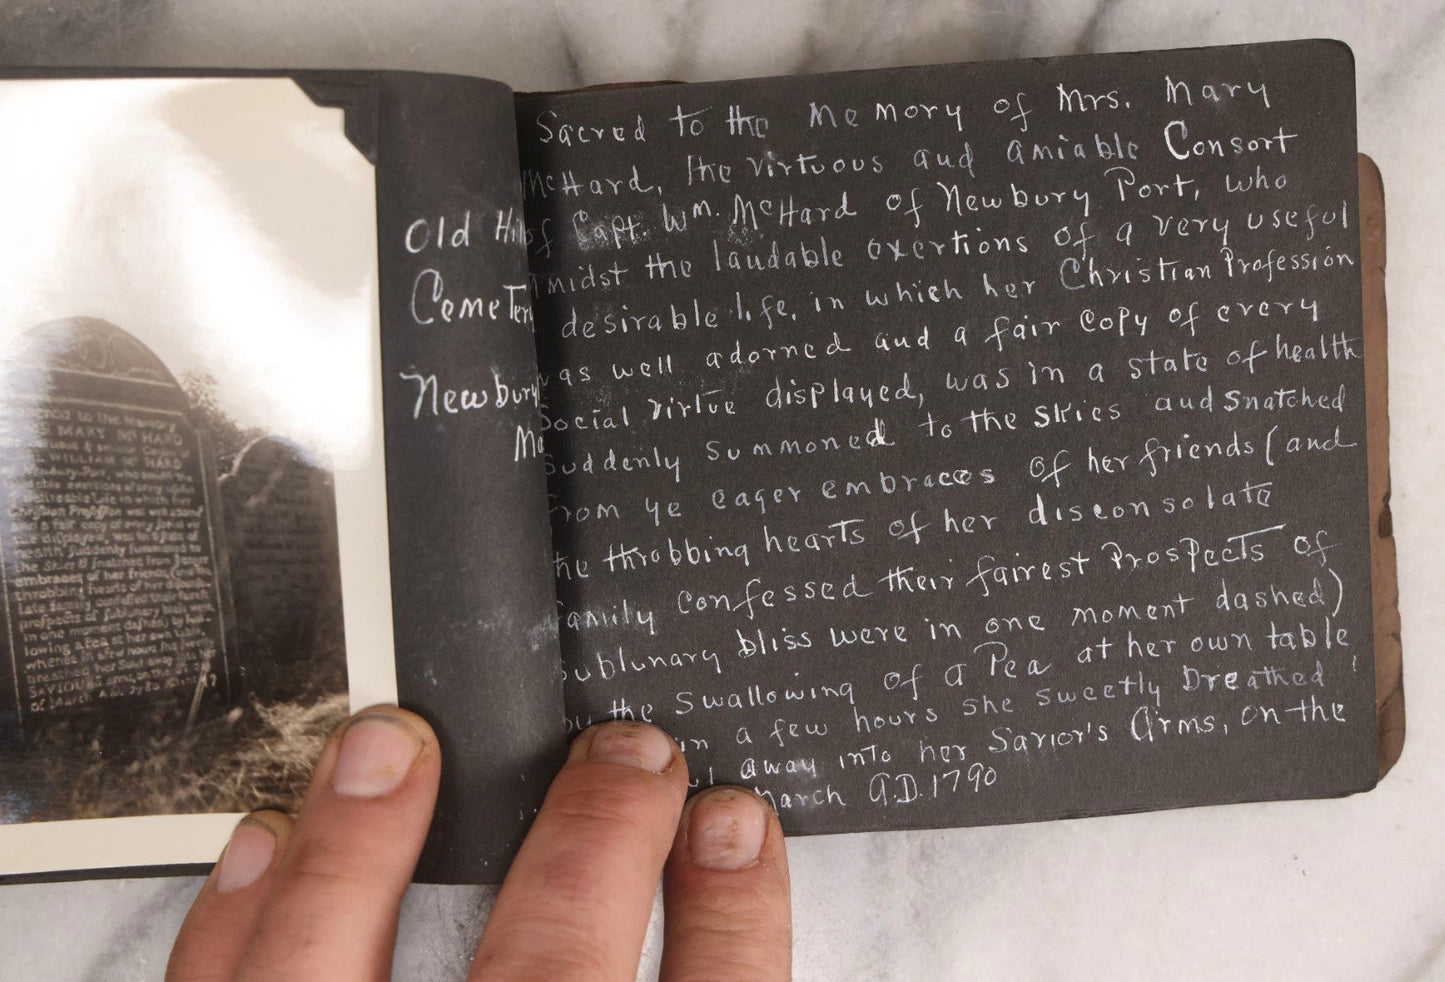 Old Hil
Cemeter
Newbury
Ma
Sacred to the Memory of Mrs. Mary
McHard, The virtuous and amiable Consort
of Capt. Wm. McHard of Newbury Port, who
amidst the laudable exertions of a very useful
desirable life, in which her Christian Profession
was well adorned and a fair copy of every
Social Virtue displayed, was in a state of health
Suddenly Summoned to the Skies and Snatched
from ye eager embraces of her friends (and
the throbbing hearts of her disconsolate
family confessed their fairest Prospects of
Sublunary bliss were in one moment dashed)
by the Swallowing of a Pea at her own table
in a few hours she sweetly Breathed
away into her Savior's Arms, on the
March A.D. 1790
Sacred to the memory
MARY McHARD
WILLIAM McHARD
Newbury Port, who amidst the
desireable Life in which her
Christian Profession was well adorned
and a fair copy of every Social vir
tue displayed, was in a state of
health, Suddenly summoned to
the Skies & snatched from ye eager
embraces of her friends, (and the
throbbing hearts of her disconso-
late family confessed their fairest
prospects of sublunary bliss were
in one moment dashed) by swal-
lowing a Pea at her own table,
whence in a few hours she sweetly
breathed her Soul away
SAVIOUR'S arms, on the
of March A.D. 1780